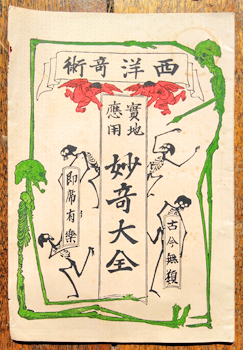 西洋奇術
實地
應用
妙奇大全
古今無類
即席有樂